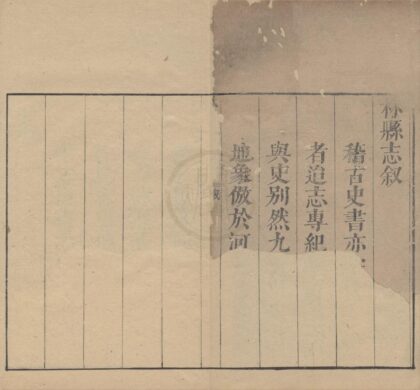 縣志叙
稽古史書亦
者迨志專紀
與史别然九
地彖倣於河